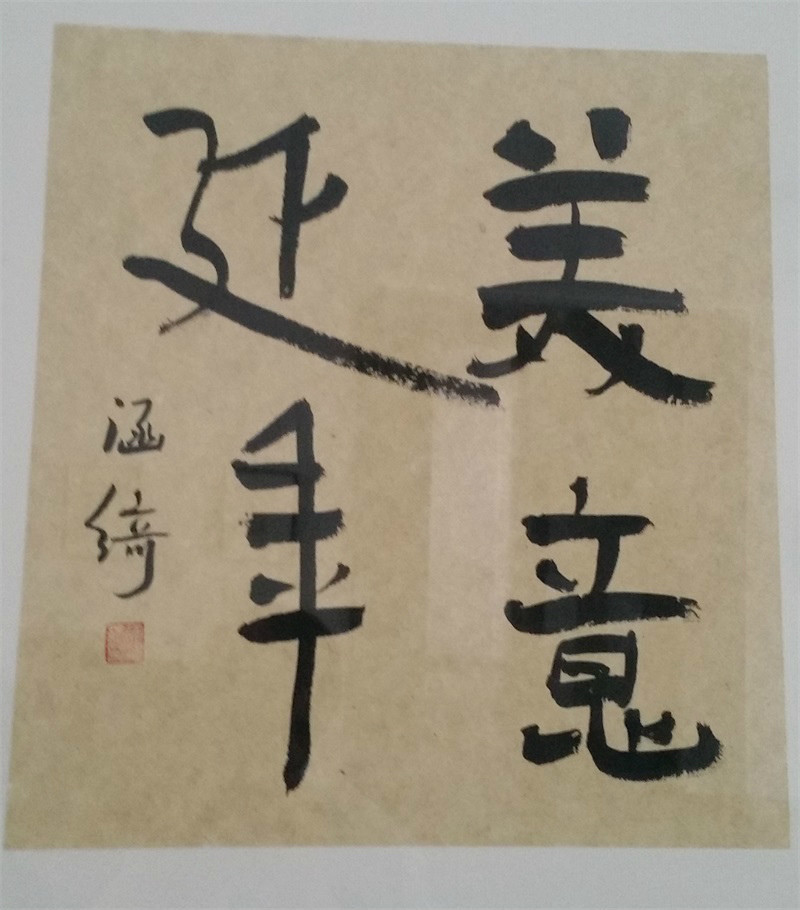 美意
延年
涵绮